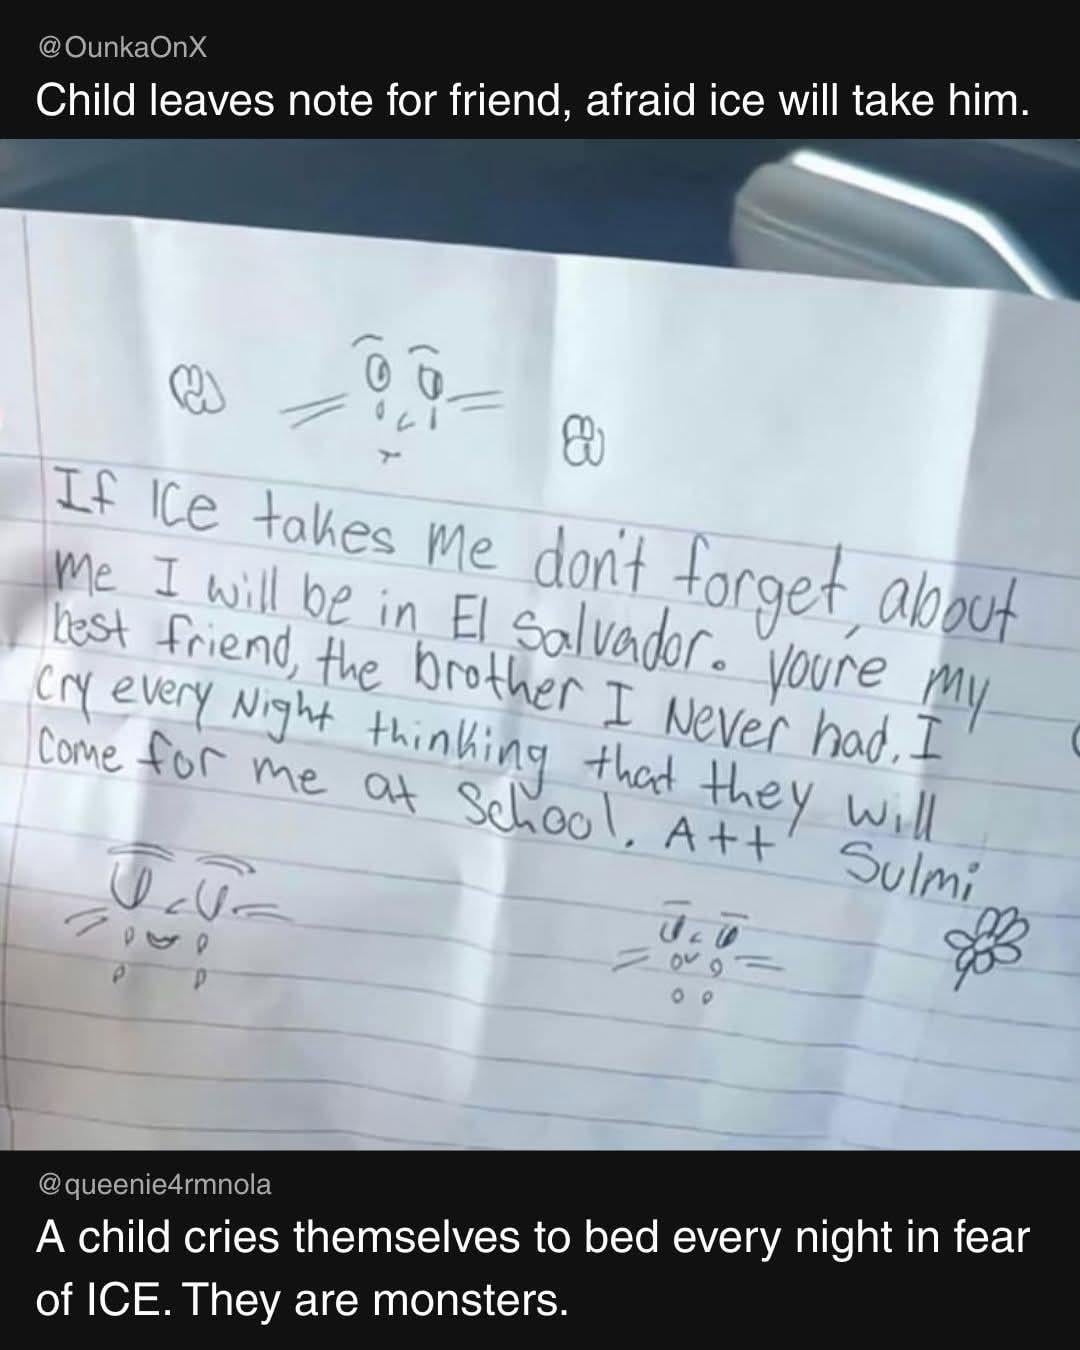 @OunkaOnX
Child leaves note for friend, afraid ice will take him.
If ICe takes me don't forget about
me I will be in El Salvador. youre my
best friend, the brother I Never had. I
Cry every Night thinking that they will
Come for me at School. A++ Sulmi
@queenie4rmnola
A child cries themselves to bed every night in fear
of ICE. They are monsters.